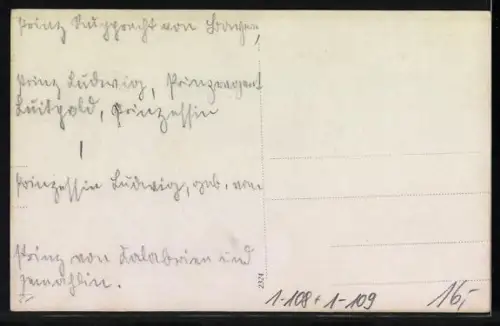 Prinz Rupprecht von Bayern,
Prinz Ludwig, Prinzregent
Luitpold, Prinzessin
Prinzessin Ludwig, geb. von
Prinz von Kalabrien und
Gemahlin.
2324
1-108 + 1-109
16,-